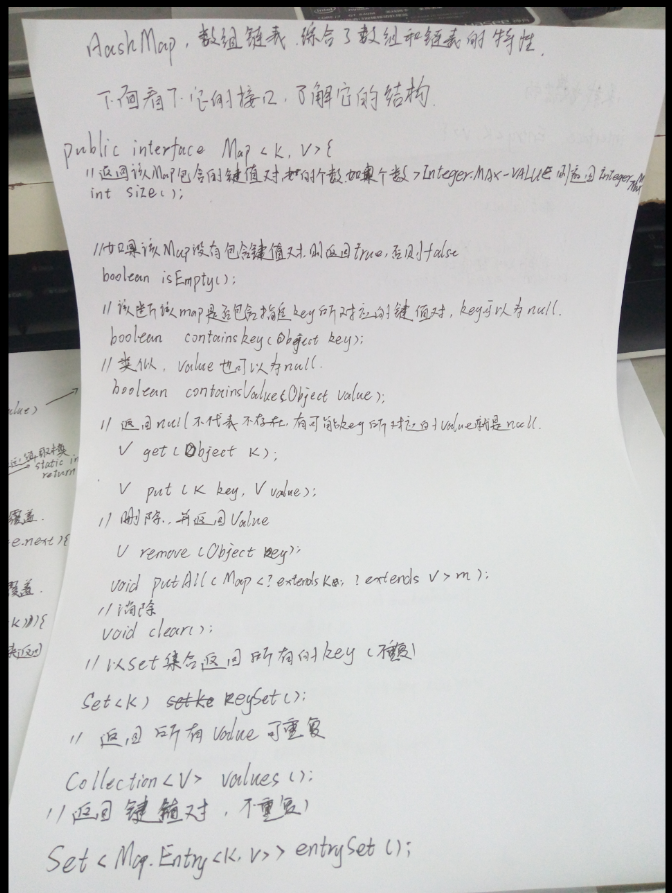 HashMap，数组链表，综合了数组和链表的特性.
下面看下它的接口，了解它的结构.
public interface Map<K, V>{
//返回该Map包含的键值对的个数，如果个数>Integer.MAX-VALUE则返回Integer.MA
int size();
//如果该Map没有包含键值对，则返回true，否则false
boolean isEmpty();
//该判断该map是否包含指定key所对应的键值对，key可以为null.
boolean containskey(Object key);
//类似，value也可以为null.
boolean containsValue(Object value);
//返回null不代表不存在，有可能key所对应的value就是null.
V get(Object K);
V put(K key, V value);
//删除，并返回Value
V remove(Object key);
void putAll(Map<? extends K, ? extends V>m);
//消除
void clear();
//以set集合返回所有的key（不重复）
Set<K) keySet();
//返回所有value可重复
Collection<V> values();
//返回键值对，不重复）
Set<Map.Entry<K, V>> entrySet();
alue)
static in
return
覆盖.
e.next){
覆盖.
k))){